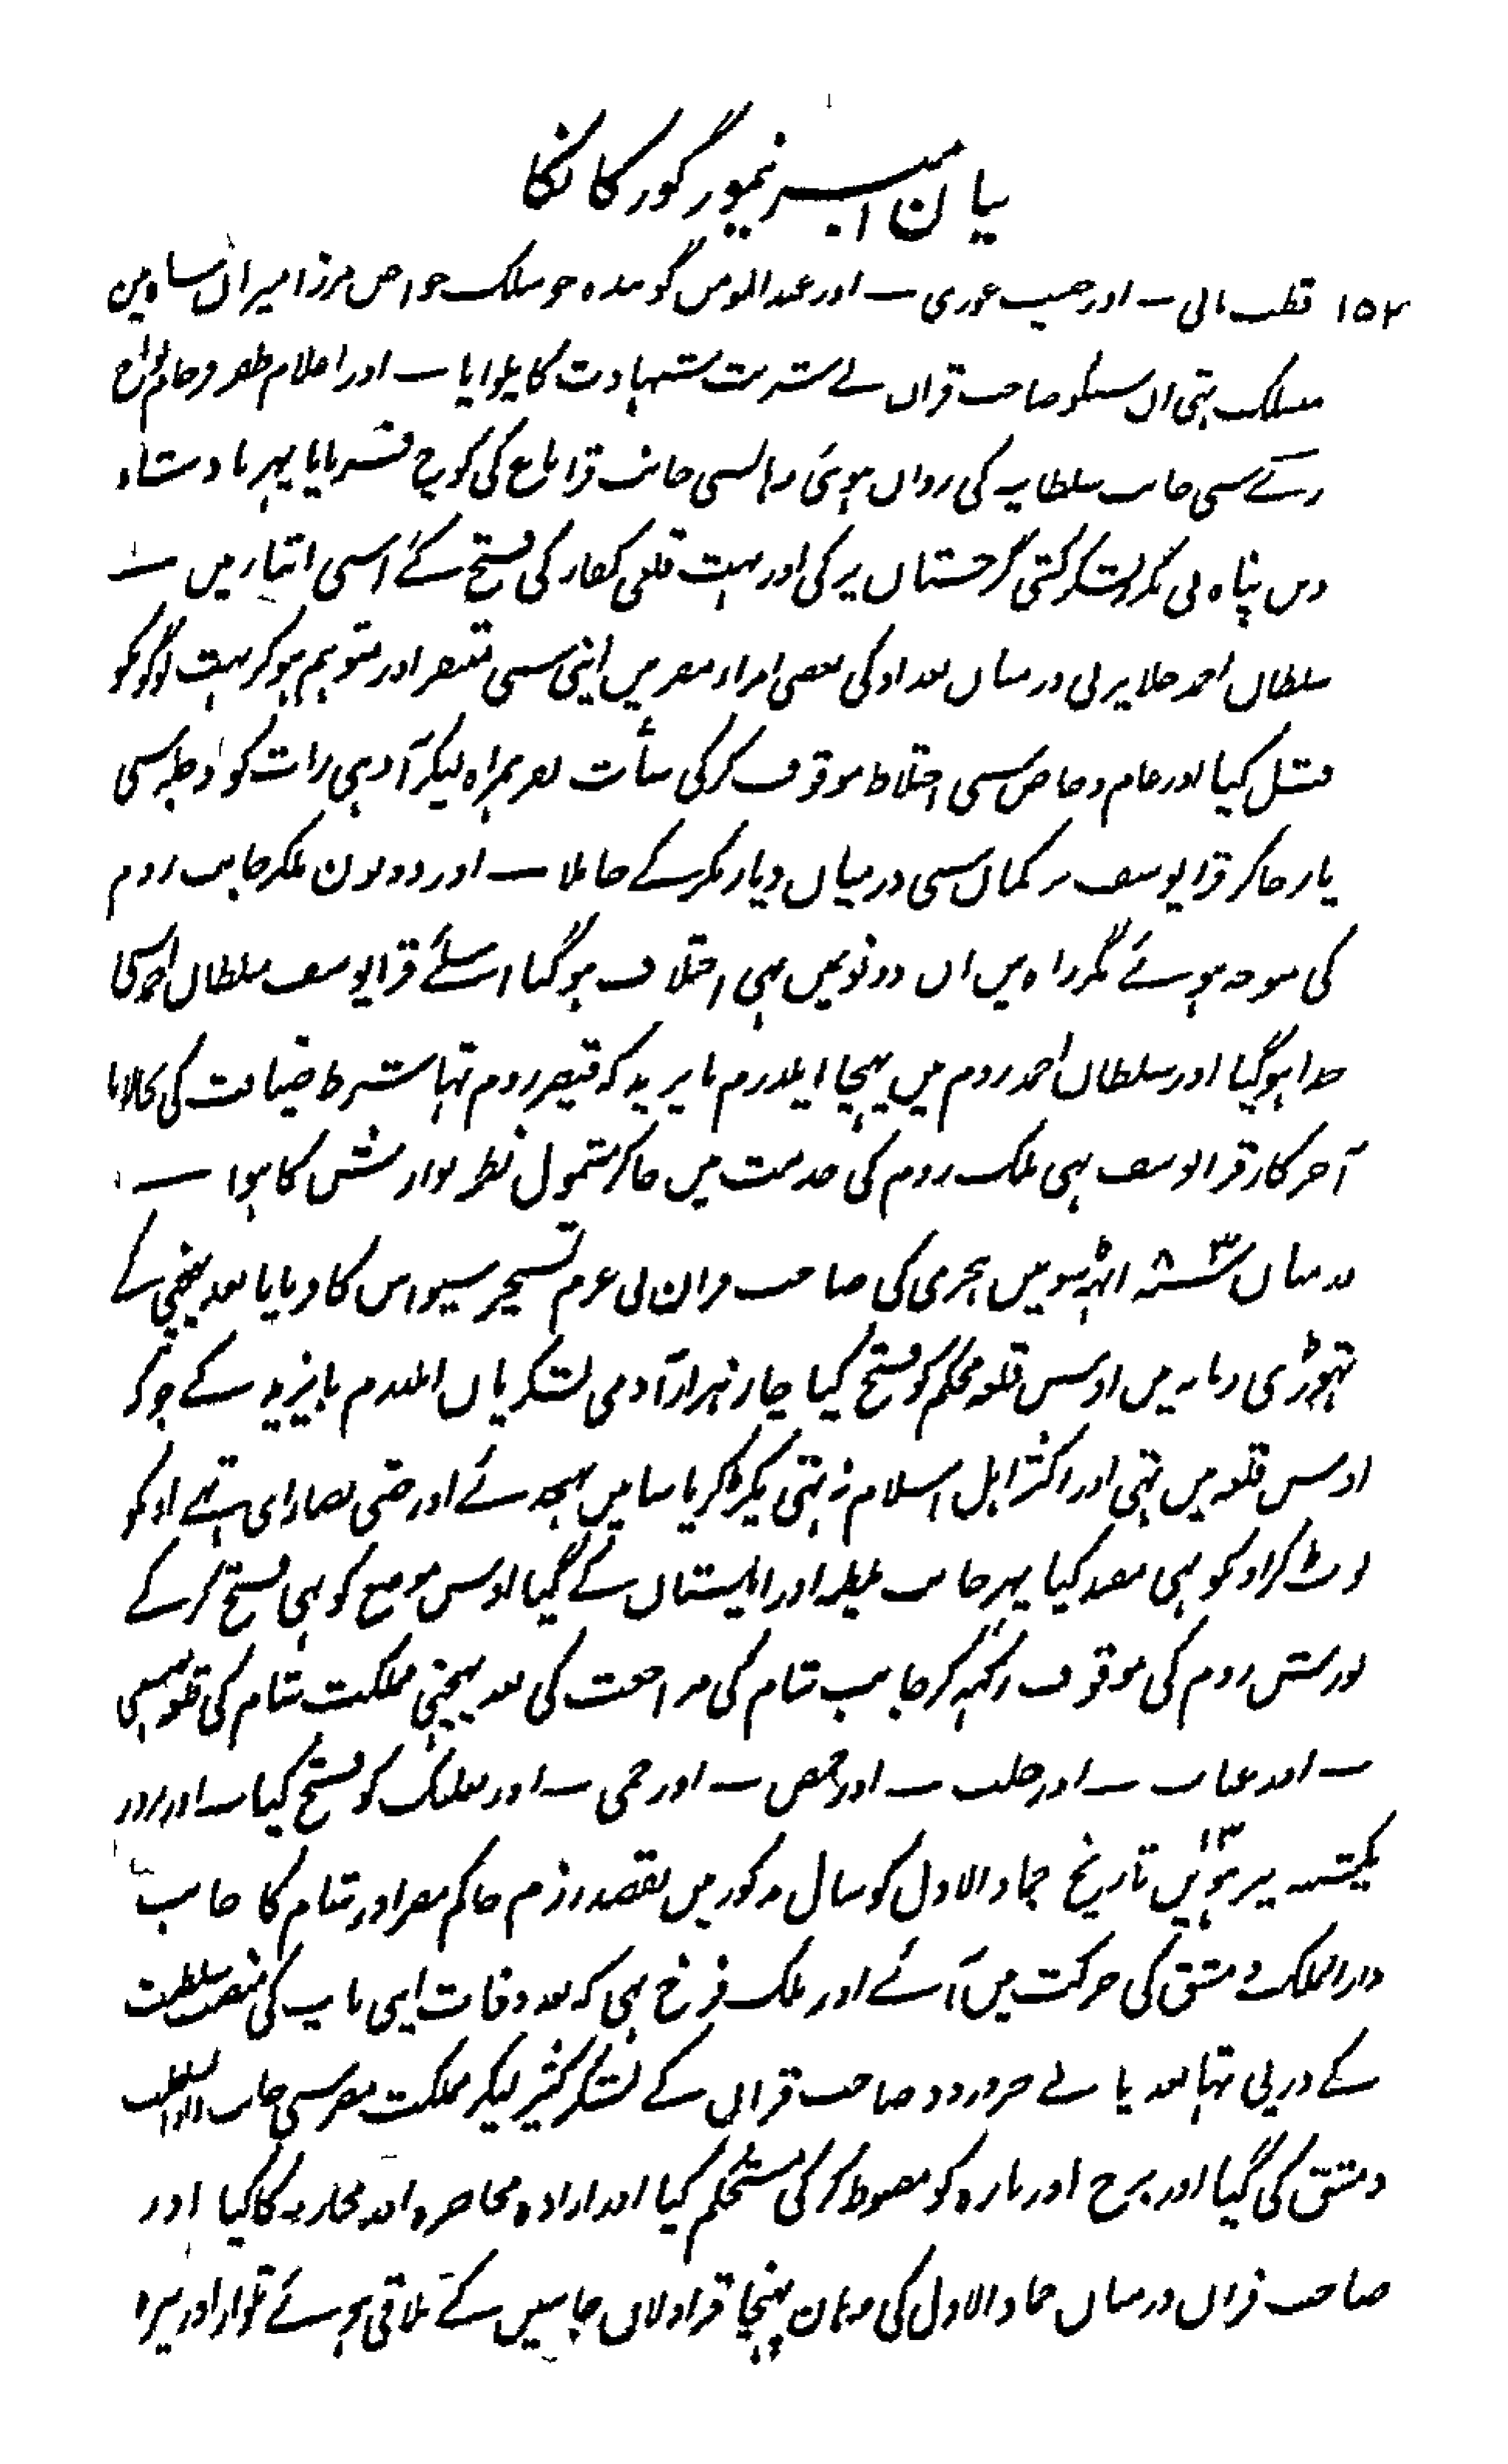 بیان امیر تیمور گورکانکا
۱۵۲ قطب نائی ۔ اور حبیب عوری ۔ اور عبدالمومن گویندہ جو سلک خواص مرزا میران شاہ مین
منسلک تہی ان سبکو صاحب قران نے شربت شہادت کا پلوایا ۔ اور اعلام ظفر
کے سی جانب سلطانیہ کی روان ہوئی وہانسی جانب قراباغ کی کوچ فرمایا پہر بادشاہ
دین پناہ نی مکرر لشکرکشی گرجستان پر کی اور بہت قلعی کفار کی فتح کئے اسی اثنار میں ۔
سلطان احمد جلایر نی درمیان بغداد کی بعضی امراء مصر میں اپنی سی متنفر اور متوہم ہوکر بہت لوگونکو
قتل کیا اور عام و خاص سی اختلاط موقوف کرکی سات نفر ہمراہ لیکر آدہی رات کو دجلہ سی
پار جاکر قرایوسف ترکمان سی درمیان دیاربکر کے جا ملا ۔ اور دونون ملکر جانب روم
کی متوجہ ہوئے مگر راہ میں ان دونوں میں بہی اختلاف ہوگیا اسلئے قرایوسف سلطان احمد سی
جدا ہوگیا اور سلطان احمد روم میں پہنچا ایلدرم بایزید کہ قیصر روم تہا شرط ضیافت کی بجالایا
آخرکار قرایوسف بہی ملک روم کی خدمت میں جاکر مشمول نظر نوازش کا ہوا ۔
درمیان سنہ ۸۰۳ آٹہہ سو میں ہجری کی صاحب قران نی عزم تسخیر سیواس کا فرمایا بعد پہنچنی کے
تہوڑی زمانہ میں اوس قلعہ محکم کو فتح کیا چار ہزار آدمی لشکریان ایلدرم بایزید کے جو کہ
اوس قلعہ میں تہی اور اکثر اہل اسلام نہ تہی پکڑکر یاسا میں پہنچائے اور جتنی نصارای تہے اونکو
لوٹ کر اونکو بہی مقید کیا پہر جانب ملطیہ اور ابلستان کے گیا اوس موضع کو بہی فتح کرکے
یورش روم کی موقوف رکہہ کر جانب شام کی مراجعت کی بعد پہنچنی مملکت شام کی قلعہ بہسنی
۔ اور عنتاب ۔ اور حلب ۔ اور حمص ۔ اور حمی ۔ اور بعلبک کو فتح کیا ۔ اور روز
یکشنبہ تیرہویں ۱۳ تاریخ جماد الاول کو سال مذکور میں بقصد رزم حاکم مصر اور شام کا جانب
دارالملک دمشق کی حرکت میں آئے اور ملک فرخ بہی کہ بعد وفات اپنی باپ کی منصب سلطنت
کے درپی تہا بعد پانے خبر ورود صاحب قران کے لشکر کثیر لیکر مملکت مصر سی جانب دارالسلطنت
دمشق کی گیا اور برج اور بارہ کو مضبوط کرکی مستحکم کیا اور ارادہ محاصرہ اور محاربہ کا کیا اور
صاحب قران درمیان جماد الاول کی وہان پہنچا قراولان جانبین کے تلاقی ہوئے تلوار اور نیزہ